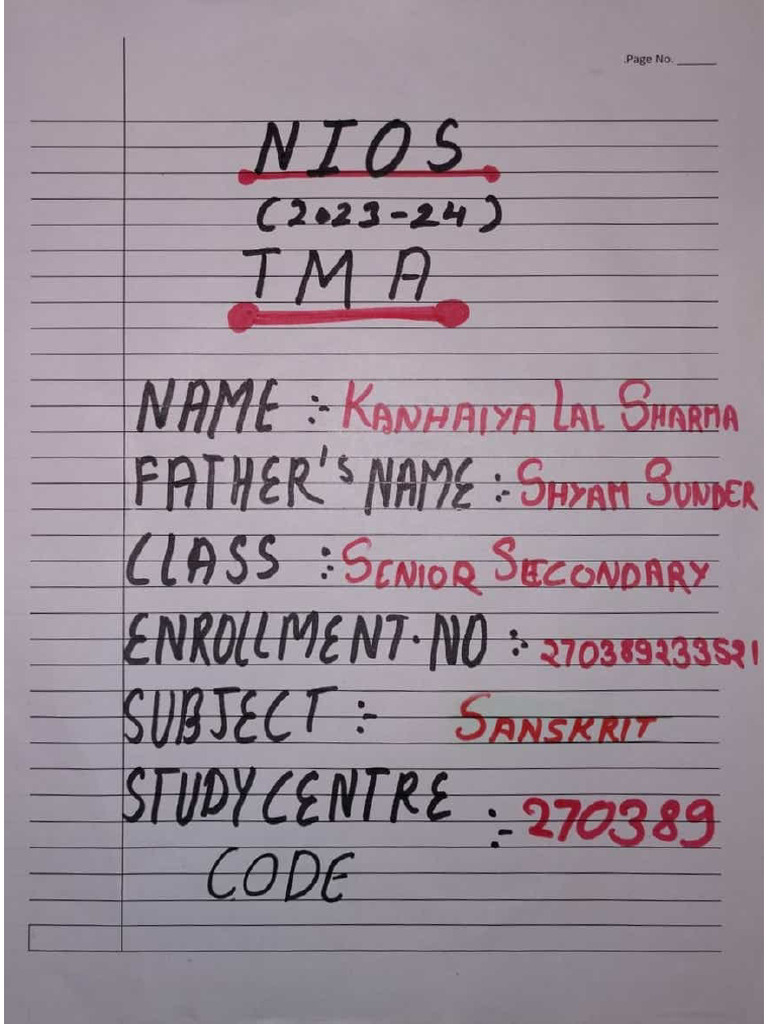 Page No.
NIOS
(2023-24)
TMA
NAME :- KANHAIYA LAL SHARMA
FATHER'S NAME :- SHYAM SUNDER
CLASS :- SENIOR SECONDARY
ENROLLMENT.NO :- 270389233521
SUBJECT :- SANSKRIT
STUDY CENTRE :- 270389
CODE